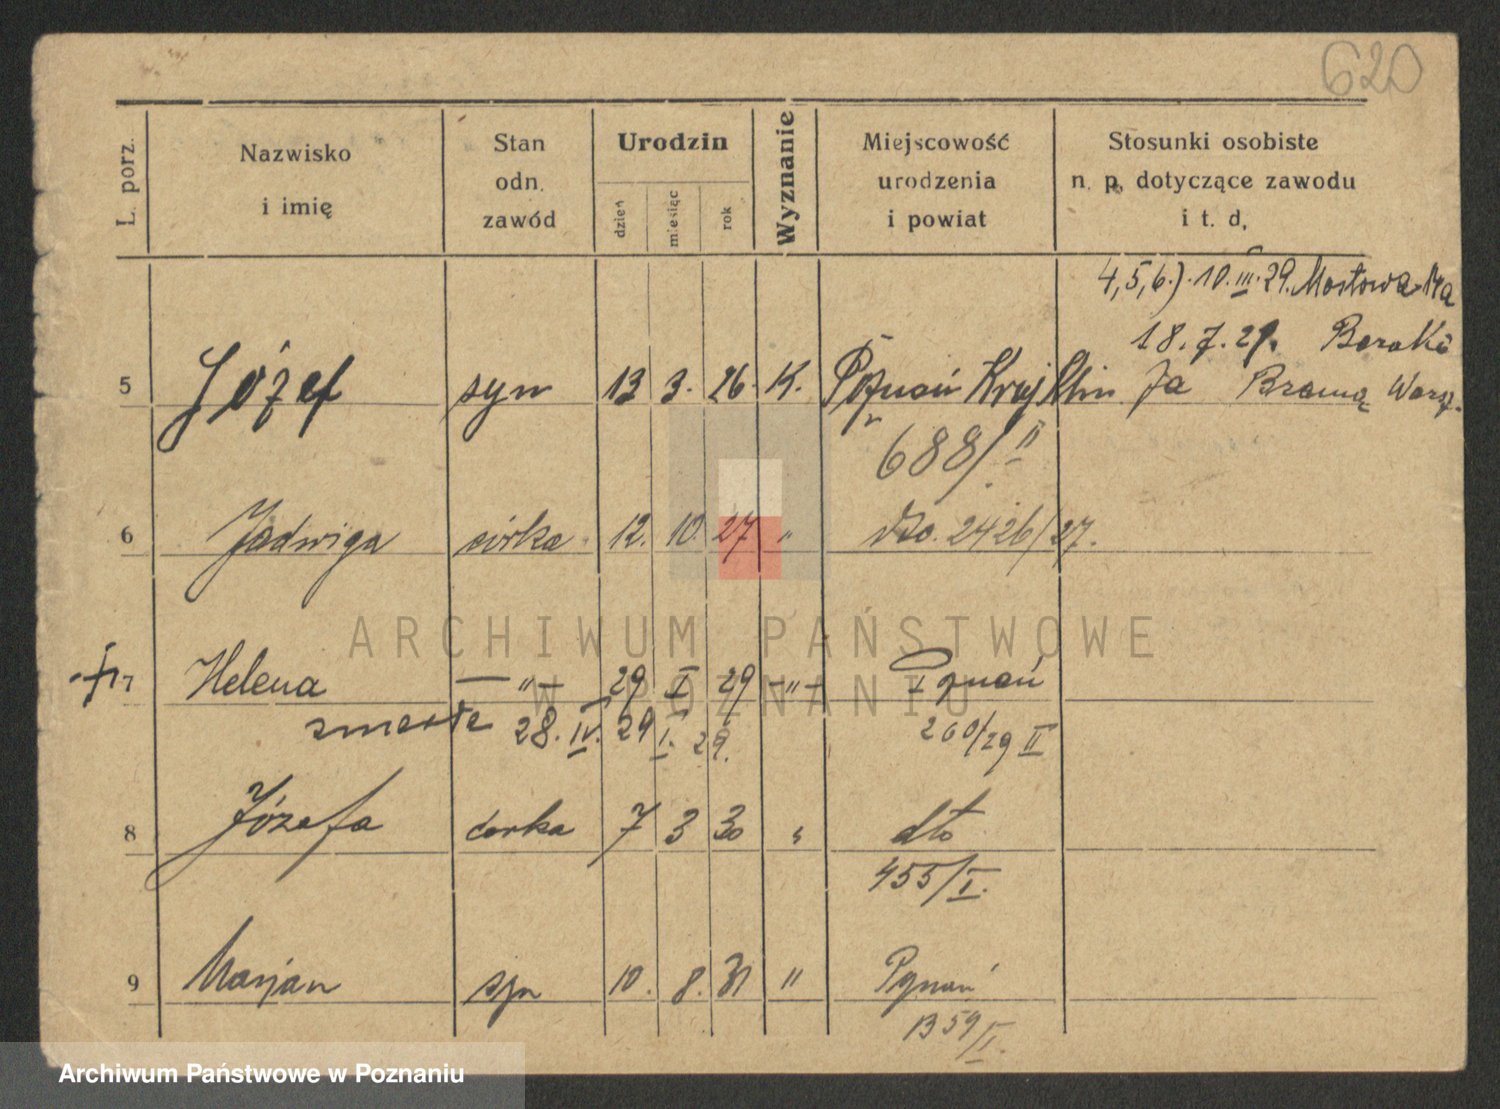 620
L. porz.
Nazwisko
i imię
Stan
odn.
zawód
Urodzin
dzień
miesiąc
rok
Wyznanie
Miejscowość
urodzenia
i powiat
Stosunki osobiste
n. p. dotyczące zawodu
i t. d.
4,5,6.) 10.III.29. Mostowa 14a
18.7.29. Baraki
5 Józef syn 13 3. 26. K. Poznań Za Bramą Warsz.
688/II
6 Jadwiga córka 12. 10. 27 " dto. 2426/27.
7 Helena —"— 29 I 29 —"— Poznań
zmarła 28. IV. 29 I. 29. 260/29 II
8 Józefa córka 7 3 30 " dto
455/I.
9 Marjan syn 10. 8. 31 " Poznań
1359/I.
ARCHIWUM PAŃSTWOWE
W POZNANIU
Archiwum Państwowe w Poznaniu